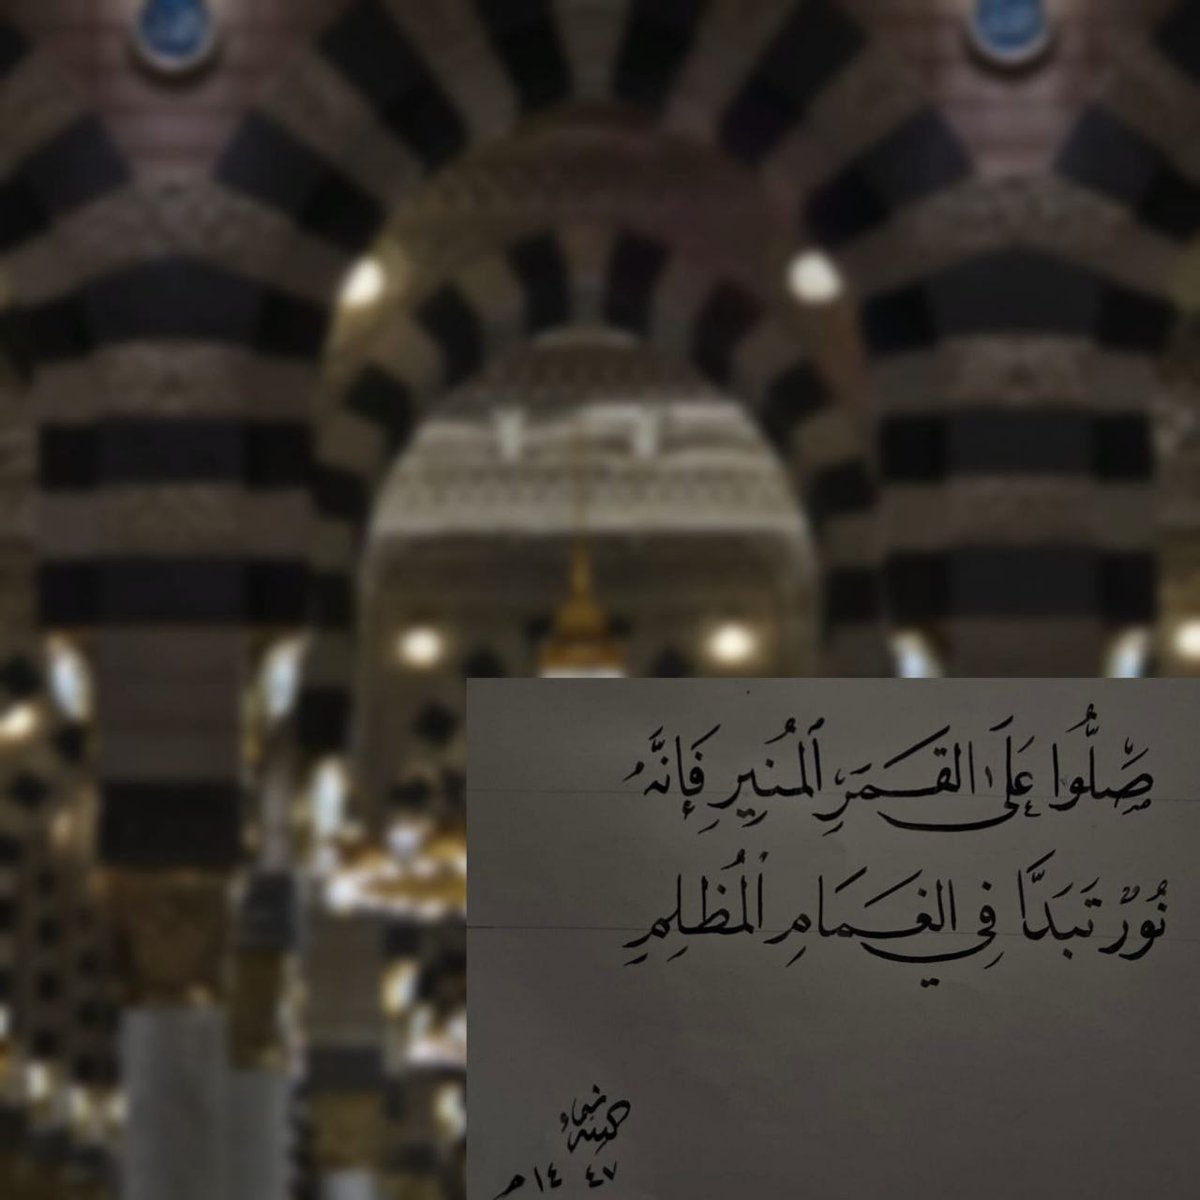 صَلُّوا عَلَى القَمَرِ المُنِيرِ فَإِنَّهُ
نُورٌ تَبَدَّا فِي الغَمَامِ المُظْلِمِ
١٤٤٧ هـ